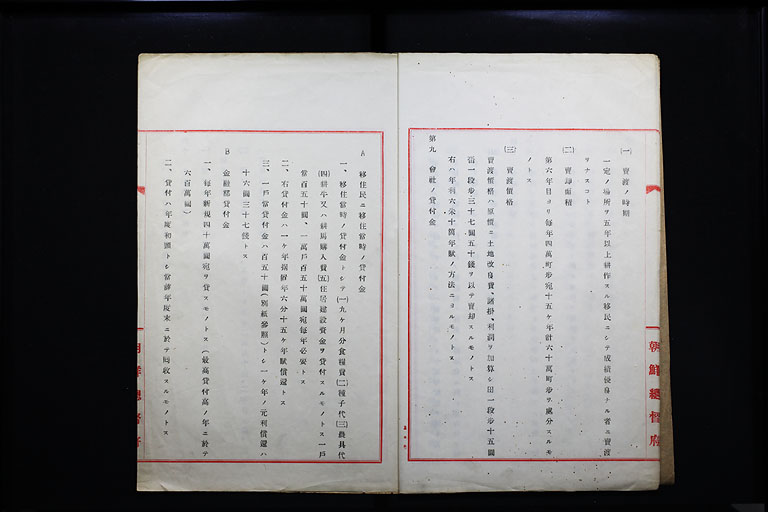 (一) 賣渡ノ時期
一定ノ場所ヲ五年以上耕作スル移民ニシテ成績優良ナル者ニ賣渡
リナスコト
(二) 賣却面積
第六年目ヨリ每年四萬町步宛十五ケ年計六十萬町步ヲ處分スルモ
ノトス
(三) 賣渡價格
賣渡價格ハ原價ニ土地改良費、諸掛、利潤ヲ加算シ田一段步十五圓
畓一段步三十七圓五十錢ヲ以テ賣却スルモノトス
右ハ年利六朱十箇年賦ノ方法ニヨルモノトス
第九 會社ノ貸付金
朝鮮總督府
A 移住民ニ移住當時ノ貸付金
一、移住當時ノ貸付金トシテ(一)九ケ月分食糧費(二)種子代(三)農具代
(四)耕牛又ハ耕馬購入費(五)住居建設資金ヲ貸付スルモノトス一戶
當百五十圓、一萬戶百五十萬圓宛每年必要トス
二、右貸付金ハ一ケ年据置年六分十五ケ年賦償還トス
三、一戶當貸付金ハ百五十圓(別紙參照)トシ一ケ年ノ元利償還ハ
十六圓三十七錢トス
B 金融部貸付金
一、每年新規四十萬圓宛ヲ貸スモノトス(最高貸付高ノ年ニ於テ
六百萬圓)
二、貸付ハ年度初頭トシ當該年度末ニ於テ回收スルモノトス